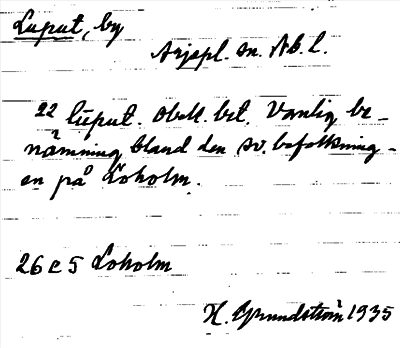 Luput, by
Arjepl. sn. Nb. l.
22 lüput. Obek. bet. Vanlig be-
nämning bland den sv. befolkning-
en på Löholm.
26 e 5 Loholm
H. Grundström 1935